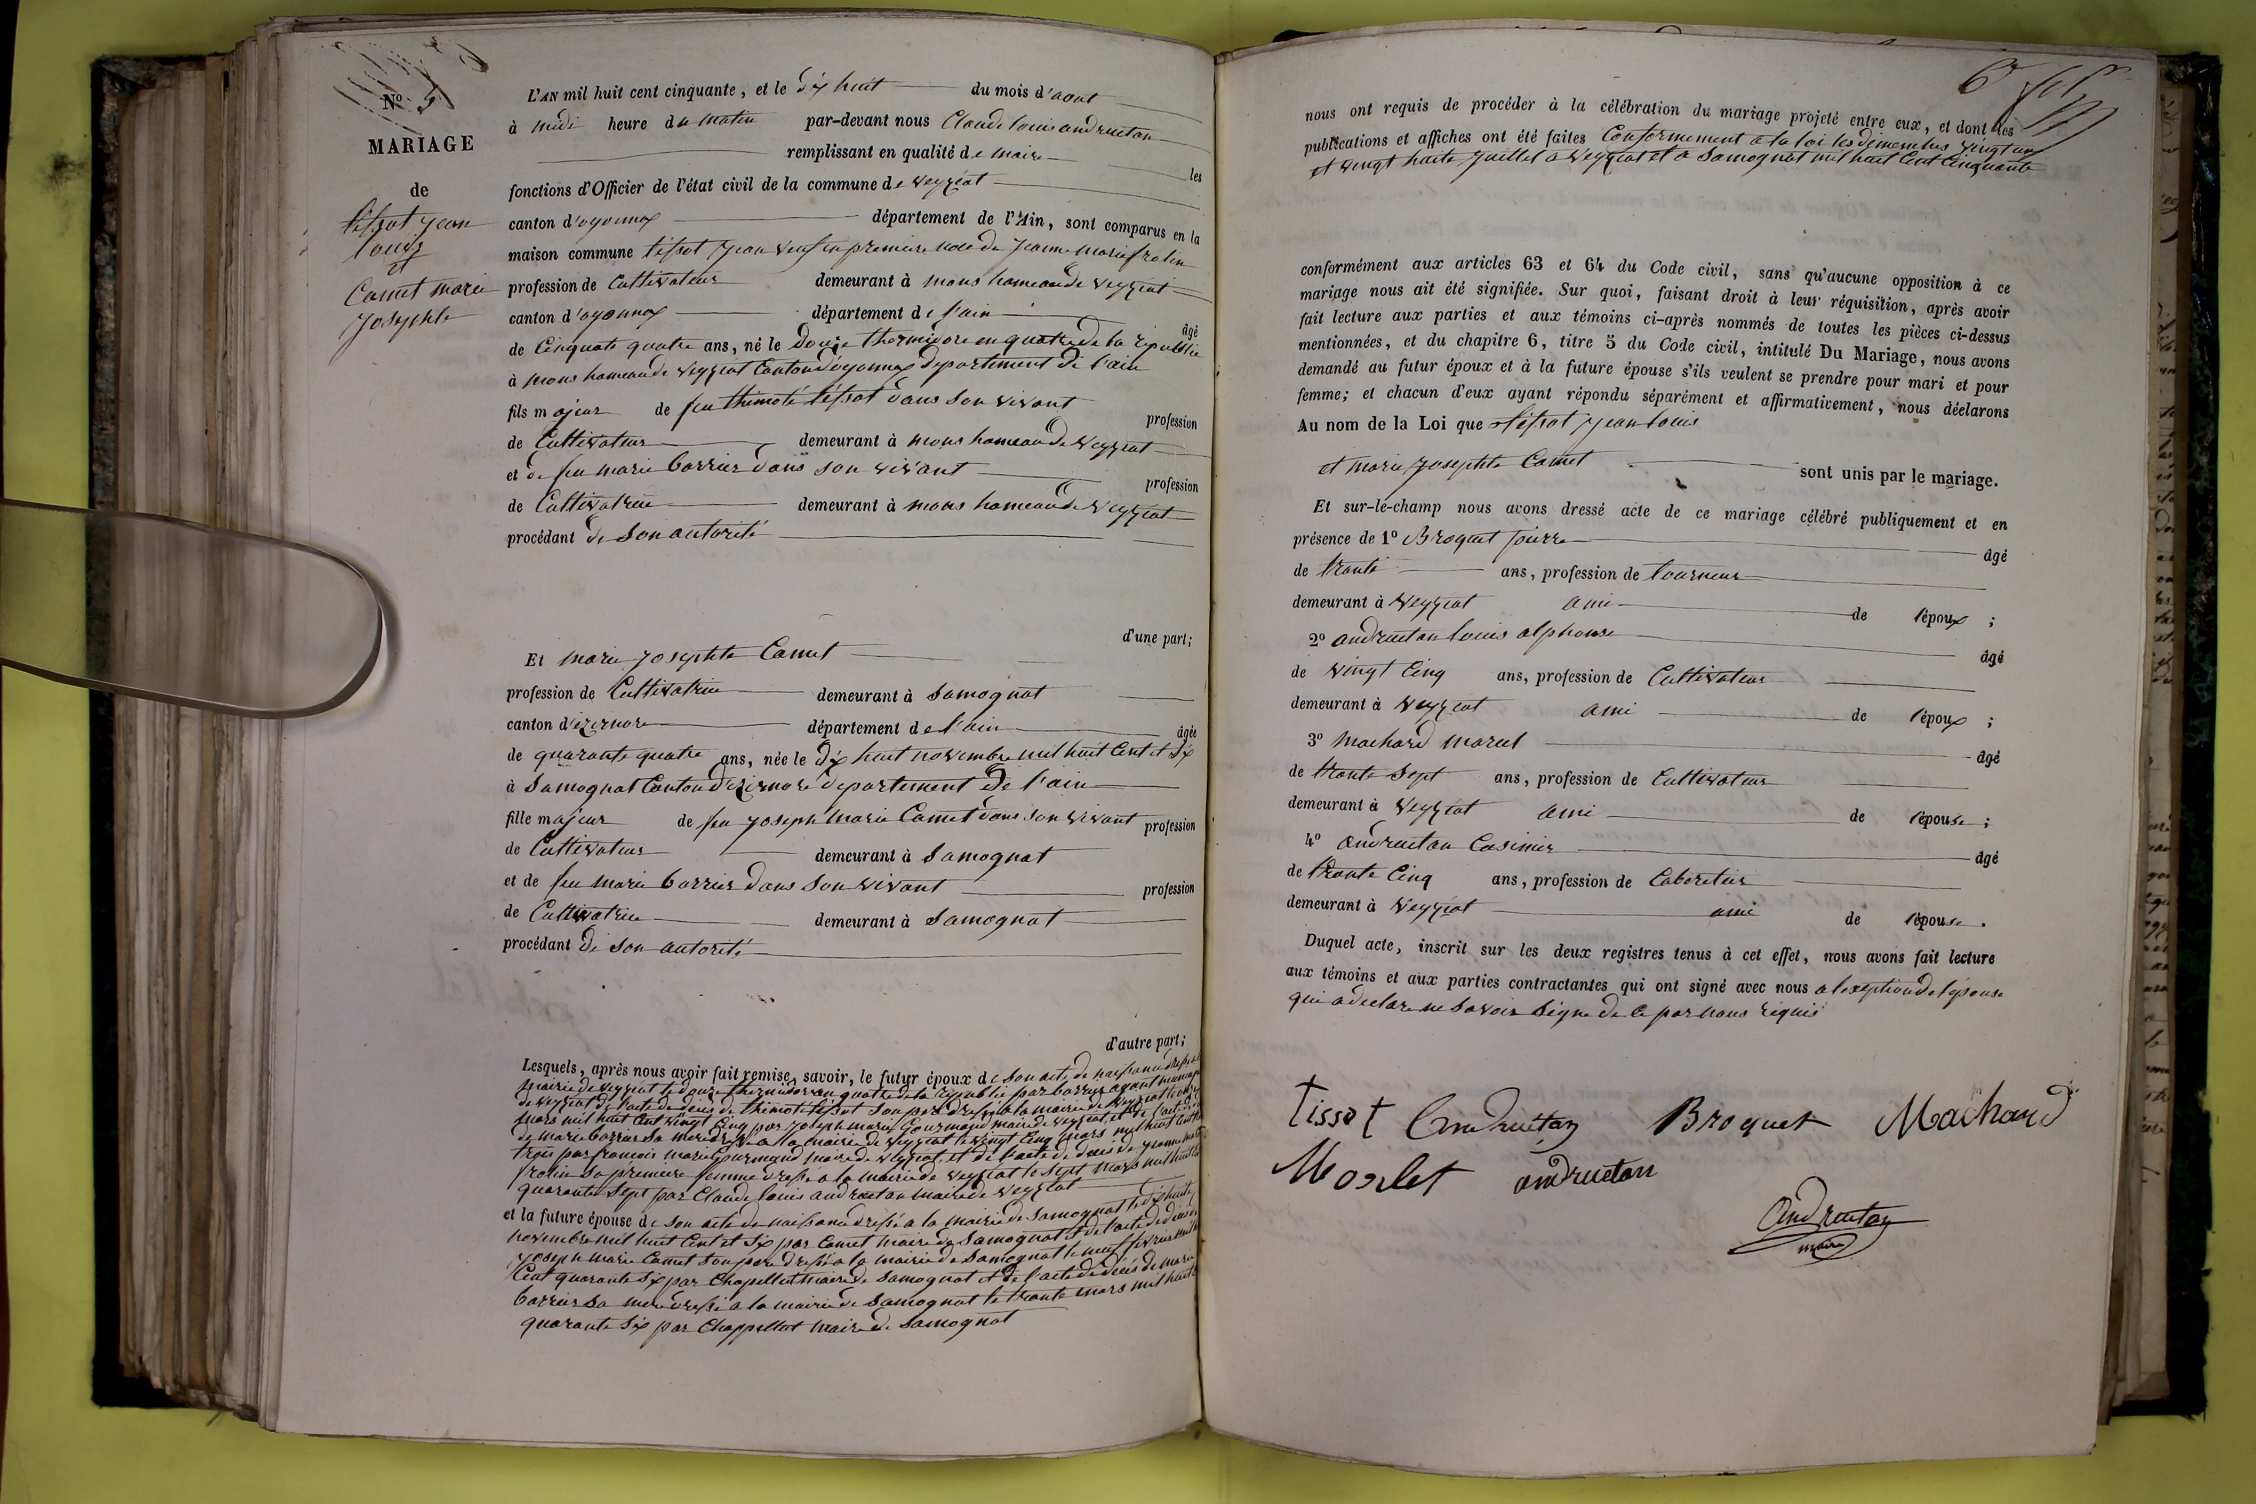 No 5
MARIAGE
de
tissot jean
louis
et
Camet marie
josephte
L'AN mil huit cent cinquante, et le dix huit du mois d'aout
à midi heure du matin par-devant nous Claude louis andruetan
remplissant en qualité de maire les
fonctions d'Officier de l'état civil de la commune de veyziat
canton d'oyonnax département de l'Ain, sont comparus en la
maison commune tissot jean veuf en premiere noce de jeanne marie frolin
profession de Cultivateur demeurant à mons hameau de veyziat
canton d'oyonnax département de l'ain âgé
de Cinquate quatre ans, né le douze thermidore en quatre de la république
à mons hameau de veyziat Canton d'oyonnax departement de l'ain
fils majeur de feu thimoté tissot dans son vivant profession
de Cultivateur demeurant à mons hameau de veyziat
et de feu marie barrier dans son vivant profession
de Cultivatrice demeurant à mons hameau de veyziat
procédant de son autorité
d'une part;
Et marie josephte Camet
profession de Cultivatrice demeurant à Samognat
canton d'izernore département de l'ain âgée
de quarante quatre ans, née le dix huit novembre mil huit Cent et six
à Samognat Canton dizernore departement de l'ain
fille majeur de feu joseph marie Camet dans son vivant profession
de Cultivateur demeurant à Samognat
et de feu marie barrier dans son vivant profession
de Cultivatrice demeurant à Samognat
procédant de son autorité
d'autre part;
Lesquels, après nous avoir fait remise, savoir, le futur époux de son acte de naissance dressé
mairie de veyziat le douze thermidor en quatre de la république par barrier ayant
de veyziat de l'acte de deces de thimoté tissot son père dressé a la mairie de veyziat le
mars mil huit Cent vingt Cinq par joseph marie gourmand maire de veyziat et de l'acte de
de marie barrier sa mere dressé a la mairie de veyziat le vingt Cinq mars mil huit Cent
trois par francois marie gourmand maire de veyziat et de l'acte de deces de jeanne
frolin sa premiere femme dressé a la mairie de veyziat le sept mars mil huit
quarante sept par Claude louis andruetan maire de veyziat
et la future épouse de son acte de naissance dressé a la mairie de Samognat le dix huit
novembre mil huit Cent et six par Camet maire de Samognat et de l'acte de deces
joseph marie Camet son pere dressé a la mairie de Samognat le neuf fevrier
Cent quarante six par Chapellut maire de Samognat et de l'acte de deces de marie
barrier sa mere dressé a la mairie de Samognat le trante mars mil huit
quarante six par Chappellut maire de Samognat
6
nous ont requis de procéder à la célébration du mariage projeté entre eux, et dont les
publications et affiches ont été faites Conformement a la loi les dimenches vingt un
et vingt huite juillet a veyziat et a Samognat mil huit Cent Cinquante
conformément aux articles 63 et 64 du Code civil, sans qu'aucune opposition à ce
mariage nous ait été signifiée. Sur quoi, faisant droit à leur réquisition, après avoir
fait lecture aux parties et aux témoins ci-après nommés de toutes les pièces ci-dessus
mentionnées, et du chapitre 6, titre 5 du Code civil, intitulé Du Mariage, nous avons
demandé au futur époux et à la future épouse s'ils veulent se prendre pour mari et pour
femme; et chacun d'eux ayant répondu séparément et affirmativement, nous déclarons
Au nom de la Loi que tissot jean louis
et marie josephte Camet sont unis par le mariage.
Et sur-le-champ nous avons dressé acte de ce mariage célébré publiquement et en
présence de 1o Broquet pierre âgé
de trante ans, profession de tourneur
demeurant à veyziat ami de l'époux ;
2o andruetan louis alphonse âgé
de vingt Cinq ans, profession de Cultivateur
demeurant à veyziat ami de l'époux ;
3o machard marcel âgé
de trante sept ans, profession de Cultivateur
demeurant à veyziat ami de l'épouse ;
4o andruetan Casimir âgé
de trante Cinq ans, profession de Cabaretier
demeurant à veyziat ami de l'épouse .
Duquel acte, inscrit sur les deux registres tenus à cet effet, nous avons fait lecture
aux témoins et aux parties contractantes qui ont signé avec nous a l'exeption de l'épouse
qui a declare ne savoir signe de ce par nous riquis
Tissot Andruétan Broquet Machard
andruetan
Andruetan
maire